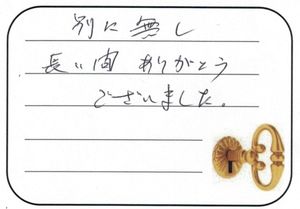 別に無し
長い間 ありがとう
ございました。